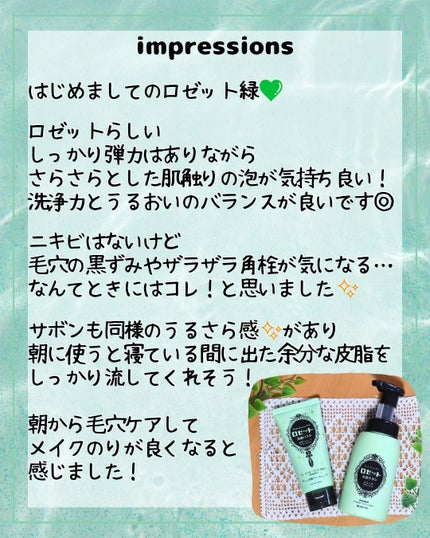 impressions
はじめましてのロゼット緑💚
ロゼットらしい
しっかり弾力はありながら
さらさらとした肌触りの泡が気持ち良い！
洗浄力とうるおいのバランスが良いです◎
ニキビはないけど
毛穴の黒ずみやザラザラ角栓が気になる…
なんてときにはコレ！と思いました✨
サボンも同様のうるさら感✨があり
朝に使うと寝ている間に出た余分な皮脂を
しっかり流してくれそう！
朝から毛穴ケアして
メイクのりが良くなると
感じました！
ロゼット
ロゼット